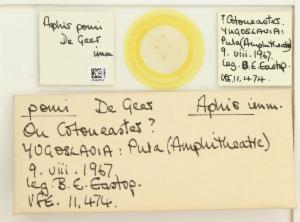 Aphis pomi
De Geer
imm.
? Cotoneaster.
YUGOSLAVIA:
Pula (Amphitheatre)
9. viii. 1967
leg. B.E. Eastop.
VFE. 11,474.
pomi De Geer Aphis imm.
On Cotoneaster?
YUGOSLAVIA: Pula (Amphitheatre)
9. viii. 1967
leg. B.E. Eastop.
VFE. 11,474.